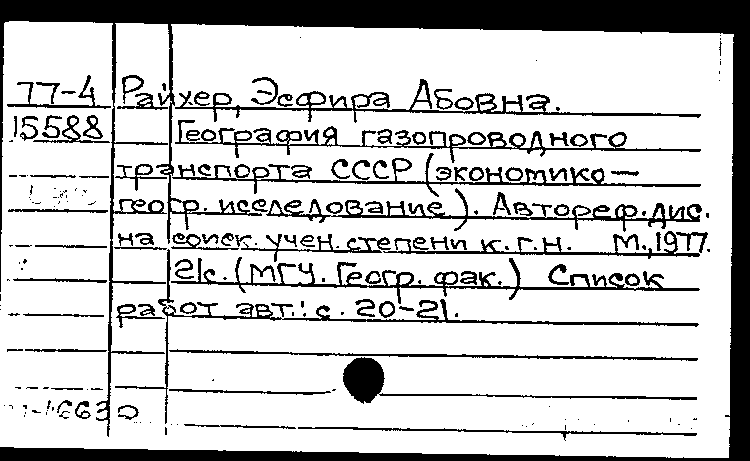 77-4 Райхер, Эсфира Абовна.
15588 География газопроводного
транспорта СССР (экономико-
геогр. исследование). Автореф. дис.
на соиск. учен. степени к.г.н. М., 1977.
21с. (МГУ. Геогр. фак.) Список
работ авт.: с. 20-21.